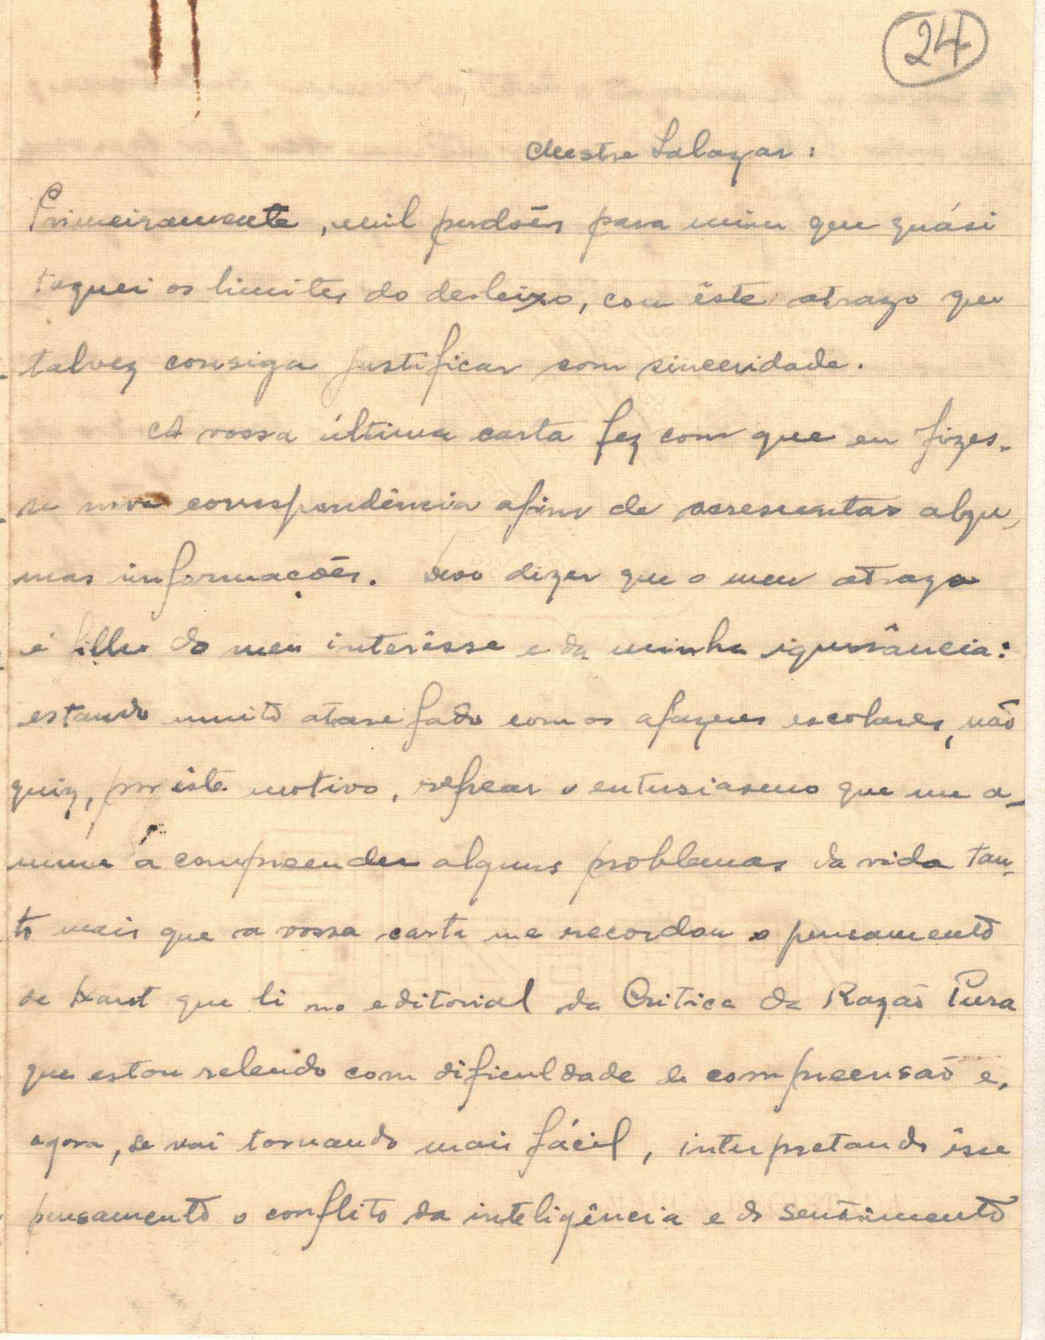 24
Mestre Salazar:
Primeiramente, mil perdões para mim que quási
toquei os limites do desleixo, com êste atrazo que
talvez consiga justificar com sinceridade.
A vossa última carta fez com que eu fizes-
se nova correspondência afim de acrescentar algu-
mas informações. Devo dizer que o meu atrazo
é filho do meu interêsse e da minha ignorância:
estando muito atarefado com os afazeres escolares, não
quiz, por iste motivo, refrear o entusiasmo que me a-
nima á compreender alguns problemas da vida tan-
to mais que a vossa carta me recordou o pensamento
de Kant que li no editorial da Critica da Razão Pura
que estou relendo com dificuldade de compreensão e,
agora, se vai tornando mais fácil, interpretando êsse
pensamento o conflito da inteligência e do sentimento